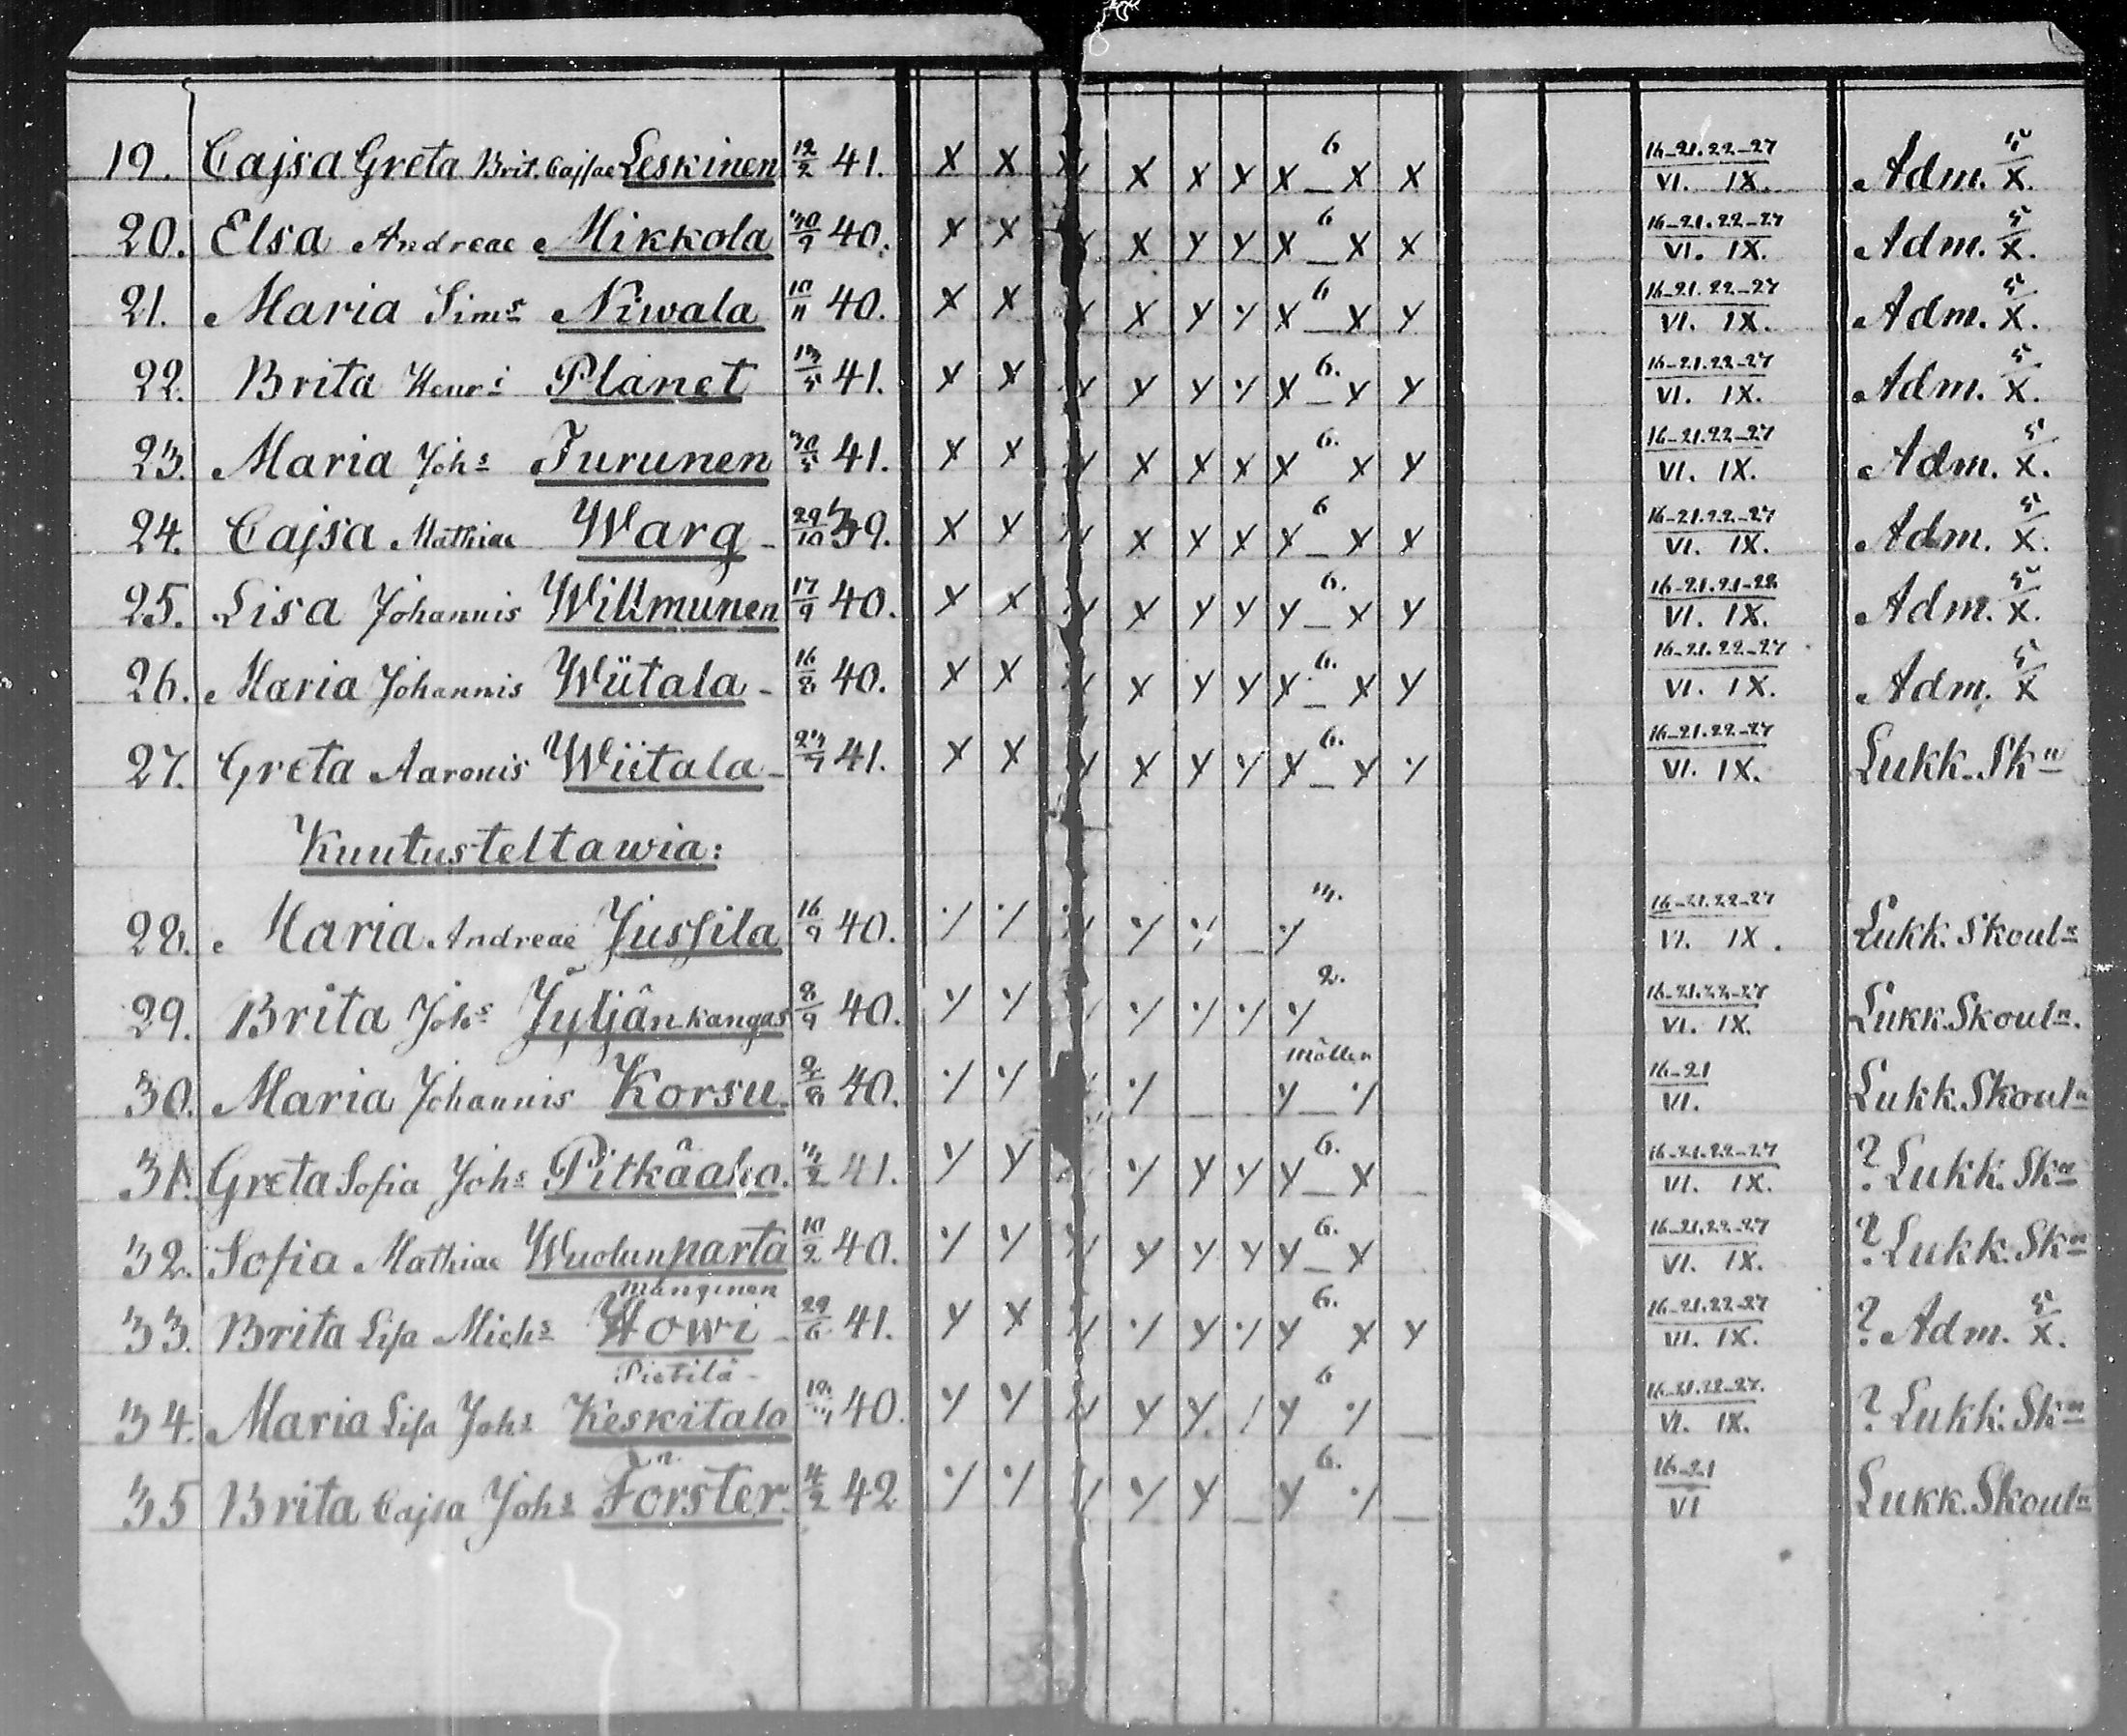 19. Cajsa Greta Brit. Cajsae Leskinen 12/2 41. X X X X X X X 6 X X 16-21. 22-27 VI. IX. Adm. 5/X.
20. Elsa Andreae Mikkola 30/9 40. X X X Y Y X 6 X X 16-21. 22-27 VI. IX. Adm. 5/X.
21. Maria Sims Niwala 10/11 40. X X X Y Y X 6 X Y 16-21. 22-27 VI. IX. Adm. 5/X.
22. Brita Henri Planet 13/5 41. X X Y Y Y X 6. Y Y 16-21. 22-27 VI. IX. Adm. 5/X.
23. Maria Johs Turunen 30/5 41. X X X X X X 6. X Y 16-21. 22-27 VI. IX. Adm. 5/X.
24. Cajsa Mathiae Warg 29/10 39. X X X X X X 6 X X 16-21. 22-27 VI. IX. Adm. 5/X.
25. Lisa Johannis Willmunen 17/9 40. X X X Y Y Y 6. X Y 16-21. 21-22 VI. IX. Adm. 5/X.
26. Maria Johannis Wiitala 16/8 40. X X X Y Y X 6. X Y 16-21. 22-27 VI. IX. Adm. 5/X
27. Greta Aaronis Wiitala 41. X X X Y Y X 6. Y Y 16-21. 22-27 VI. IX. Lukk. Skn
Kuutusteltawia:
28. Maria Andreae Jussila 16/9 40. 16-21. 22-27 VI. IX. Lukk. Skouln
29. Brita Johs Jyljänkangas 8/9 40. 2. 16-21. 22-27 VI. IX. Lukk. Skouln.
30. Maria Johannis Korsu 40. 16-21 VI. Lukk. Skouln
31. Greta Sofia Johs Pitkäaho. 3/2 41. Y Y Y Y Y 6. X 16-21. 22-27 VI. IX. ? Lukk. Skn
32. Sofia Mathiae Wuolunparta 10/2 40. Y Y Y Y Y Y 6. X 16-21. 22-27 VI. IX. ? Lukk. Skn
Manginen
33. Brita Lisa Michs Howi 29/6 41. Y X Y Y 6. X Y 16-21. 22-27 VI. IX. ? Adm. 5/X.
Pietilä
34. Maria Lisa Johs Keskitalo 40. Y Y Y Y Y 6 16-21. 22-27. VI. IX. ? Lukk. Skn
35 Brita Cajsa Johs Förster 4/2 42 Y Y 6. 16-21 VI Lukk. Skouln